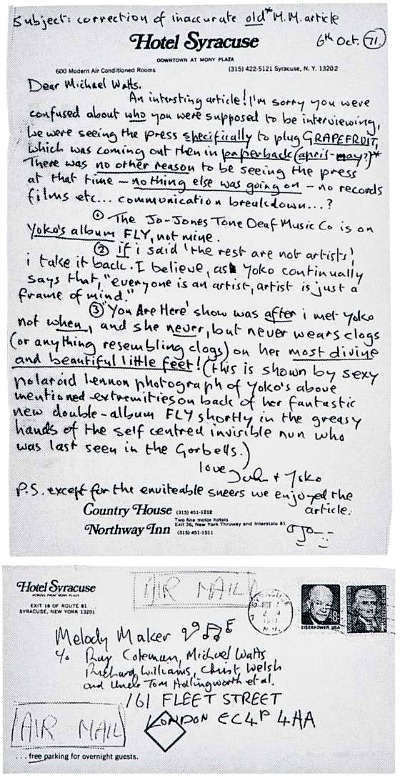 Subject: correction of inaccurate old* M.M. article
Hotel Syracuse
6th Oct. 71.
DOWNTOWN AT MONY PLAZA
600 Modern Air Conditioned Rooms (315) 422-5121 Syracuse, N. Y. 13202
Dear Michael Watts.
An interesting article! I'm sorry you were
confused about who you were supposed to be interviewing,
we were seeing the press specifically to plug GRAPEFRUIT,
which was coming out then in paperback (april - may?)*
There was no other reason to be seeing the press
at that time – nothing else was going on – no records
films etc... communication breakdown...?
① The Jo-Jones Tone Deaf Music Co is on
Yoko's album FLY, not mine.
② if i said 'the rest are not artists'
i take it back. I believe, as Yoko continually
says that, "everyone is an artist, artist is just a
frame of mind."
③ 'You Are Here' show was after i met Yoko
not when, and she never, but never wears clogs
(or anything resembling clogs) on her most divine
and beautiful little feet! (this is shown by sexy
polaroid lennon photograph of Yoko's above
mentioned extremities on back of her fantastic
new double-album FLY shortly in the greasy
hands of the self centred invisible nun who
was last seen in the Gorbells.)
love John + Yoko
P.S. except for the enviteable sneers we enjoyed the
article.
Country House (315) 451-1212
Two fine motor hotels
Exit 36, New York Thruway and Interstate 81
Northway Inn (315) 451-1511
Hotel Syracuse
EXIT 18 OF ROUTE 81
SYRACUSE, NEW YORK 13201
AIR MAIL
EISENHOWER USA
Melody Maker
c/o Ray Coleman, Michael Watts
Richard Williams, Christ Welsh
and Uncle Tom Hollingworth et al.
161 FLEET STREET
LONDON EC4P 4AA
AIR MAIL
... free parking for overnight guests.